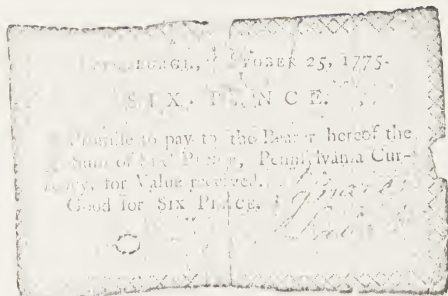 OCTOBER 25, 1775.
SIX PENCE.
Promise to pay to the Bearer hereof the
Sum of Six Pence, Pennsylvania Cur-
rency, for Value received.
Good for SIX PENCE.